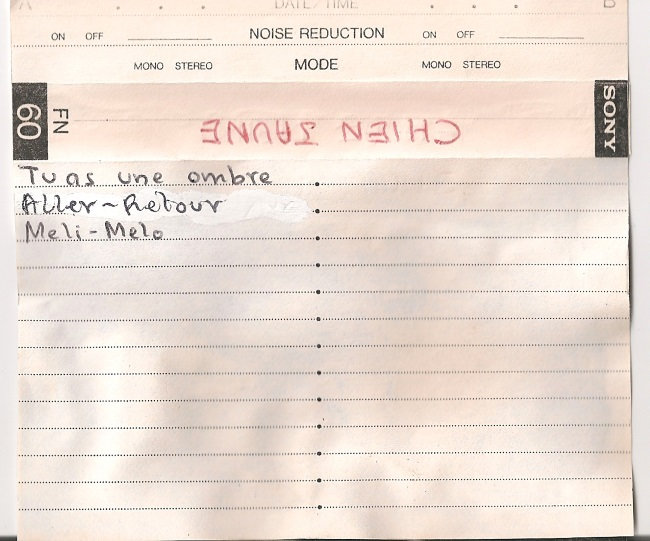 A DATE/TIME B
ON OFF NOISE REDUCTION ON OFF
MONO STEREO MODE MONO STEREO
60 FN CHIEN JAUNE SONY
Tu as une ombre
Aller-Retour
Meli-Melo